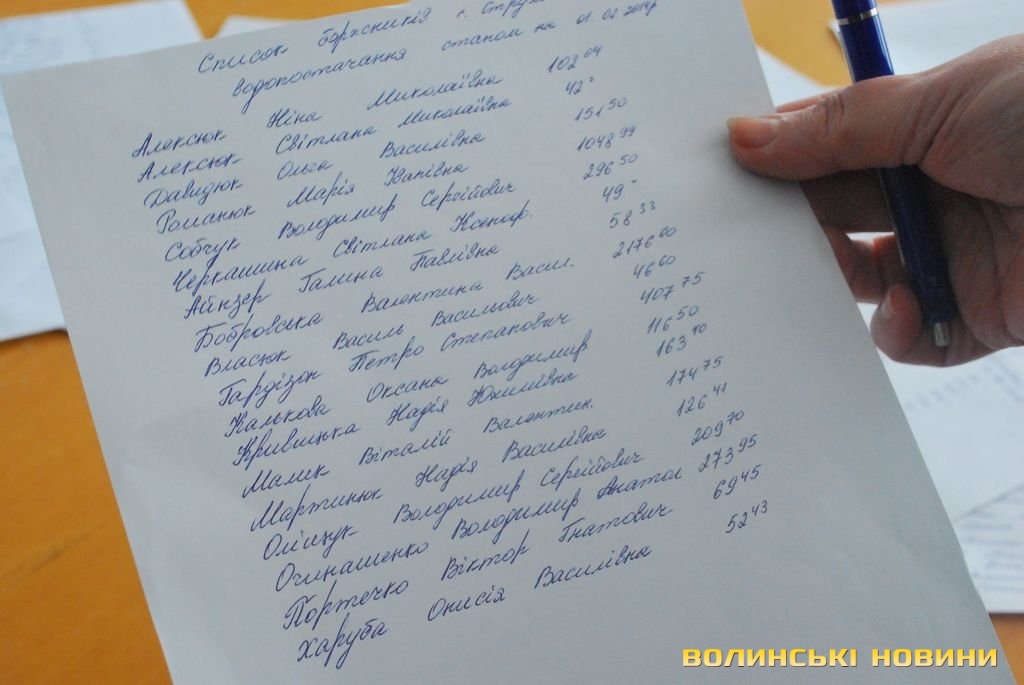 Список боржників с. Струм
водопостачання станом на 01.02.2014р
Алексюк Ніна Миколаївна 102 04
Алексюк Світлана Миколаївна 42 -
Давидюк Ольга Василівна 151 50
Романюк Марія Іванівна 1048 99
Собчук Володимир Сергійович 296 50
Черкашина Світлана Ксеноф. 49 -
Айнзер Галина Павлівна 58 33
Бобровська Валентина Васил. 2176 60
Власюк Василь Васильович 46 60
Гардізок Петро Степанович 407 75
Калькова Оксана Володимир 116 50
Кривицька Надія Юхимівна 163 10
Малик Віталій Валентин. 174 75
Мартинюк Надія Василівна 126 41
Оліщук Володимир Сергійович 209 70
Володимир Анатол 273 95
Портечко Віктор Гнатович 69 45
Харуба Онисія Василівна 52 43
ВОЛИНСЬКІ НОВИНИ